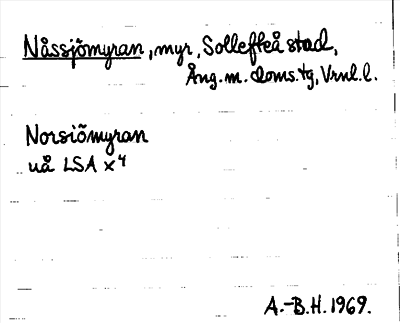 Nåssjömyran, myr, Sollefteå stad,
Ång. m. doms. tg, Vrnl. l.
Norsiömyran
uå LSA x 4
A.-B.H. 1969.